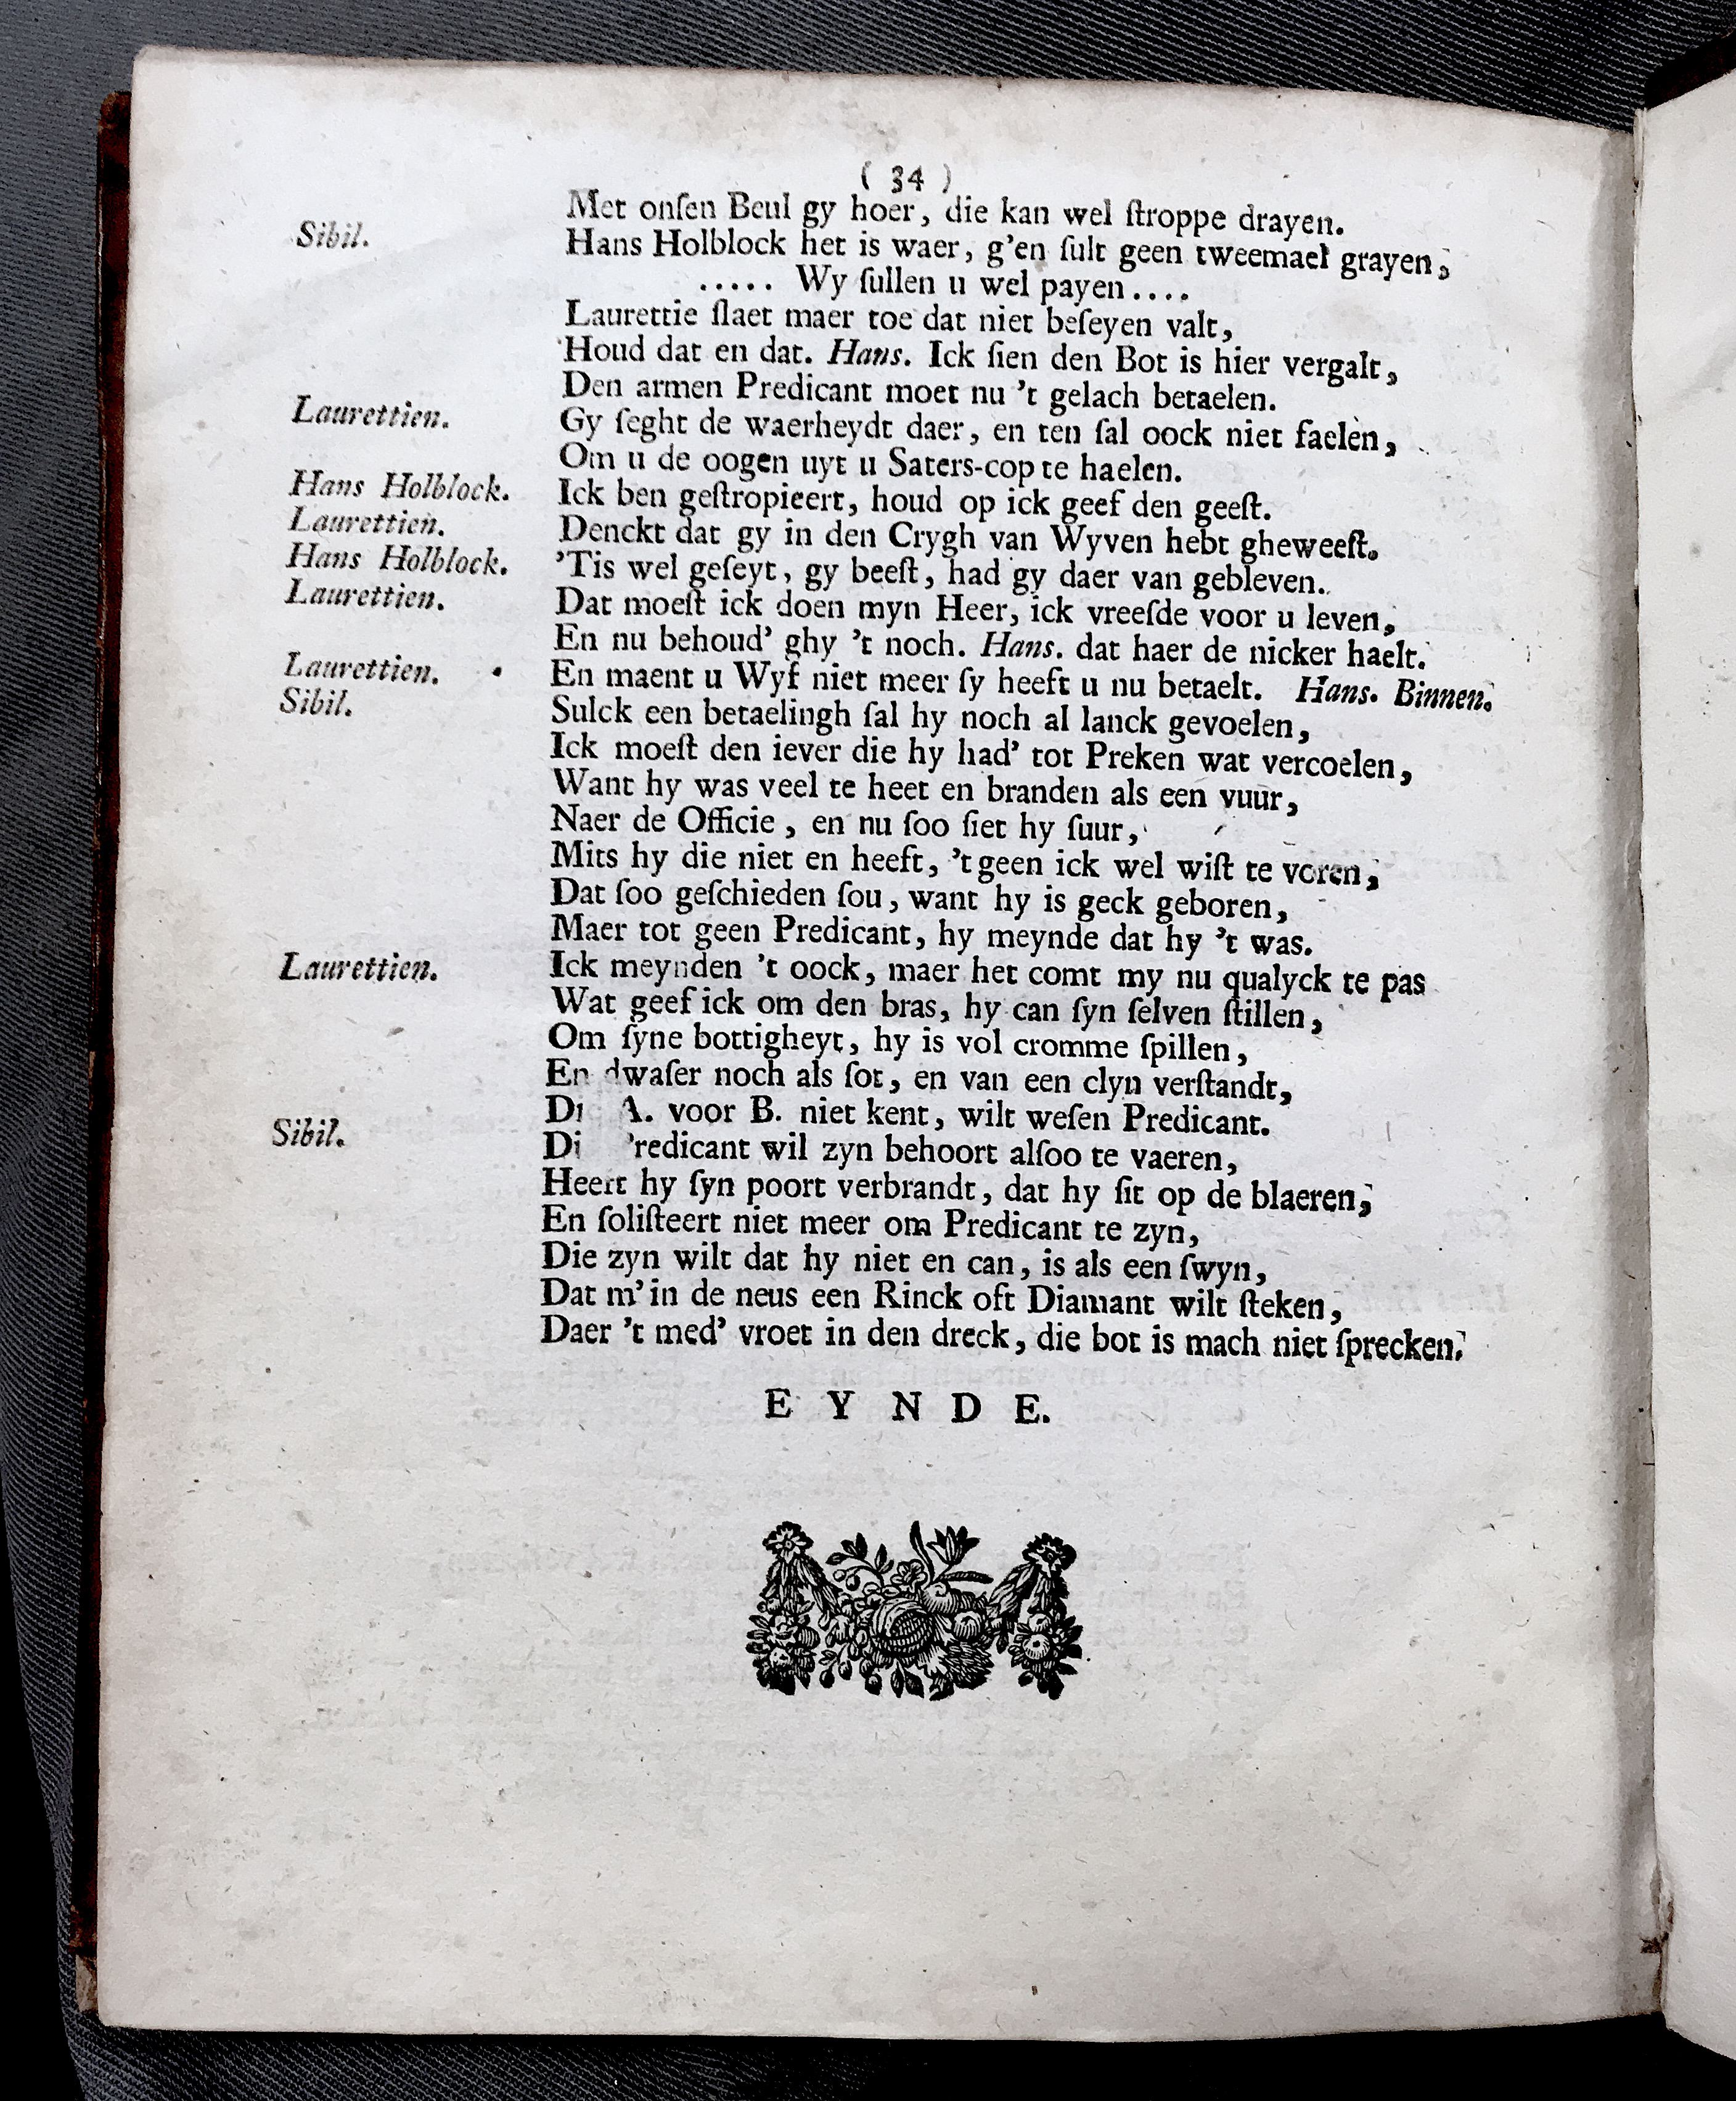 ( 34 )
Met onſen Beul gy hoer, die kan wel ſtroppe drayen.
Sibil. Hans Holblock het is waer, g'en ſult geen tweemael grayen,
..... Wy ſullen u wel payen....
Laurettie ſlaet maer toe dat niet beſeyen valt,
Houd dat en dat. Hans. Ick ſien den Bot is hier vergalt,
Den armen Predicant moet nu 't gelach betaelen.
Laurettien. Gy ſeght de waerheydt daer, en ten ſal oock niet faelen,
Om u de oogen uyt u Saters-cop te haelen.
Hans Holblock. Ick ben geſtropieert, houd op ick geef den geeſt.
Laurettien. Denckt dat gy in den Crygh van Wyven hebt gheweeſt.
Hans Holblock. 'Tis wel geſeyt, gy beeſt, had gy daer van gebleven.
Laurettien. Dat moeſt ick doen myn Heer, ick vreeſde voor u leven,
En nu behoud' ghy 't noch. Hans. dat haer de nicker haelt.
Laurettien. En maent u Wyf niet meer ſy heeft u nu betaelt. Hans. Binnen.
Sibil. Sulck een betaelingh ſal hy noch al lanck gevoelen,
Ick moeſt den iever die hy had' tot Preken wat vercoelen,
Want hy was veel te heet en branden als een vuur,
Naer de Officie, en nu ſoo ſiet hy ſuur,
Mits hy die niet en heeft, 't geen ick wel wiſt te voren,
Dat ſoo geſchieden ſou, want hy is geck geboren,
Maer tot geen Predicant, hy meynde dat hy 't was.
Laurettien. Ick meynden 't oock, maer het comt my nu qualyck te pas
Wat geef ick om den bras, hy can ſyn ſelven ſtillen,
Om ſyne bottigheyt, hy is vol cromme ſpillen,
En dwaſer noch als ſot, en van een clyn verſtandt,
A. voor B. niet kent, wilt weſen Predicant.
Sibil. Di 'redicant wil zyn behoort alſoo te vaeren,
Heeft hy ſyn poort verbrandt, dat hy ſit op de blaeren,
En ſoliſteert niet meer om Predicant te zyn,
Die zyn wilt dat hy niet en can, is als een ſwyn,
Dat m'in de neus een Rinck oft Diamant wilt ſteken,
Daer 't med' vroet in den dreck, die bot is mach niet ſprecken.
E Y N D E.